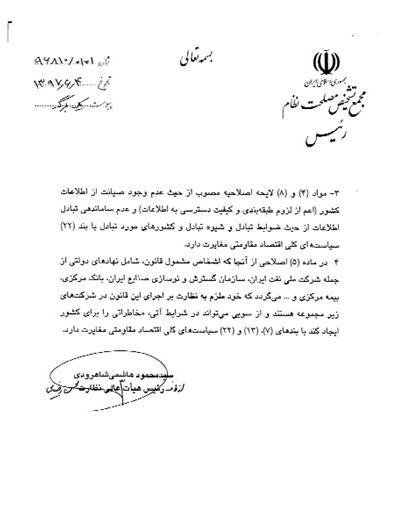 بسمه تعالی
جمهوری اسلامی ایران
مجمع تشخیص مصلحت نظام
رئیس
شماره ۰۱۰۱/۹۶۸۱۰
تاریخ ۱۳۹۷/۶/۴
پیوست
۳- مواد (۴) و (۸) لایحه اصلاحیه مصوب از حیث عدم وجود صیانت از اطلاعات
کشور (اعم از لزوم طبقه‌بندی و کیفیت دسترسی به اطلاعات) و عدم ساماندهی تبادل
اطلاعات از حیث ضوابط تبادل و شیوه تبادل و کشورهای مورد تبادل با بند (۲۲)
سیاست‌های کلی اقتصاد مقاومتی مغایرت دارد.
۴- در ماده (۵) اصلاحی از آنجا که اشخاص مشمول قانون، شامل نهادهای دولتی از
جمله شرکت ملی نفت ایران، سازمان گسترش و نوسازی صنایع ایران، بانک مرکزی،
بیمه مرکزی و ... می‌گردد که خود ملزم به نظارت بر اجرای این قانون در شرکت‌های
زیر مجموعه هستند و از سویی می‌تواند در شرایط آتی، مخاطراتی را برای کشور
ایجاد کند با بندهای (۷)، (۱۳) و (۲۲) سیاست‌های کلی اقتصاد مقاومتی مغایرت دارد.
سیدمحمود هاشمی شاهرودی
رئیس هیأت عالی نظارت